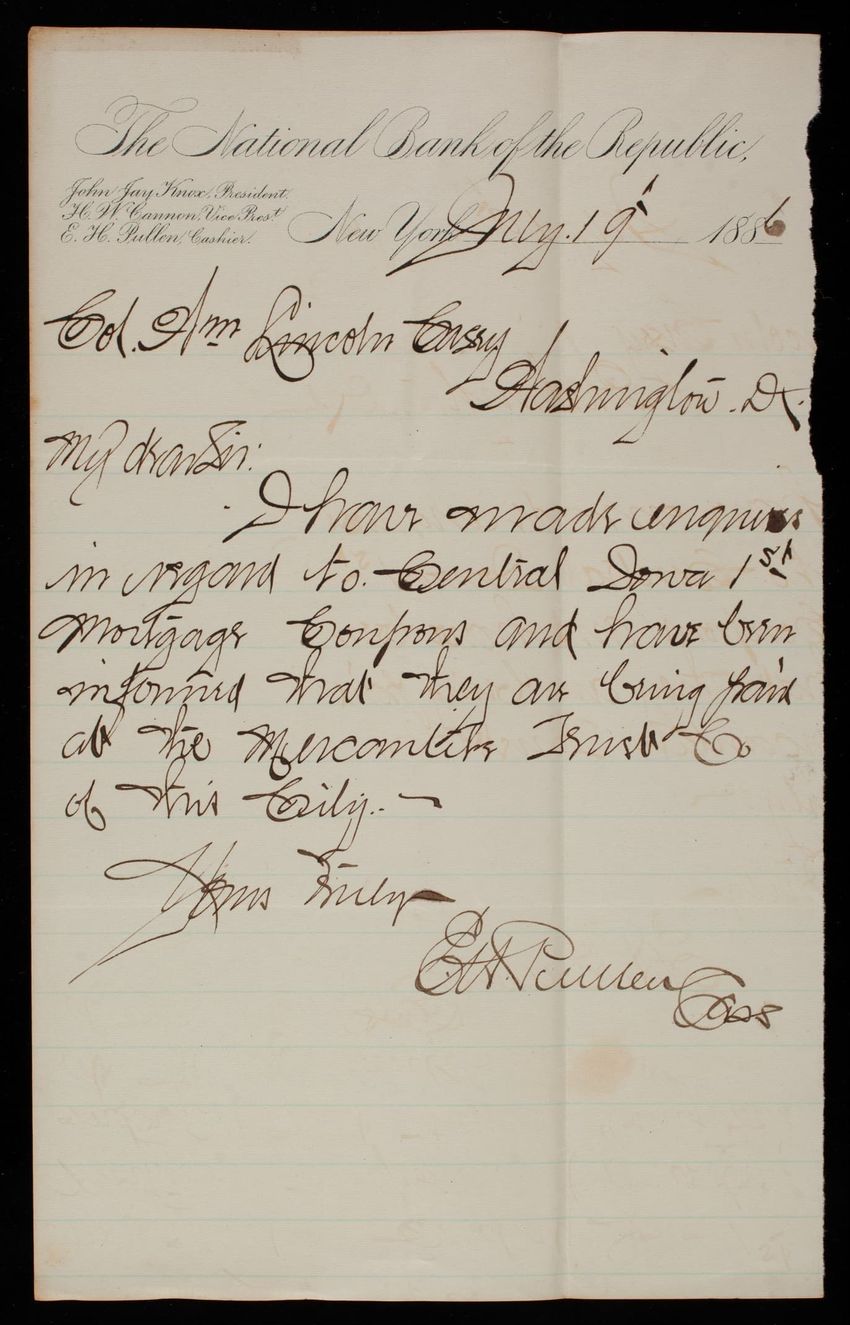 The National Bank of the Republic,
John Jay Knox, President.
H. W. Cannon, Vice Prest.
E. H. Pullen, Cashier.
New York July. 19 1886
Col. Wm Lincoln Casey
Washington. D.C.
My dear Sir:
I have made enquires
in regard to. Central Iowa 1st
Mortgage Coupons and have been
informed that they are being paid
at the Mercantile Trust Co
of this City. —
Yours Truly
E. H. Pullen
Cas